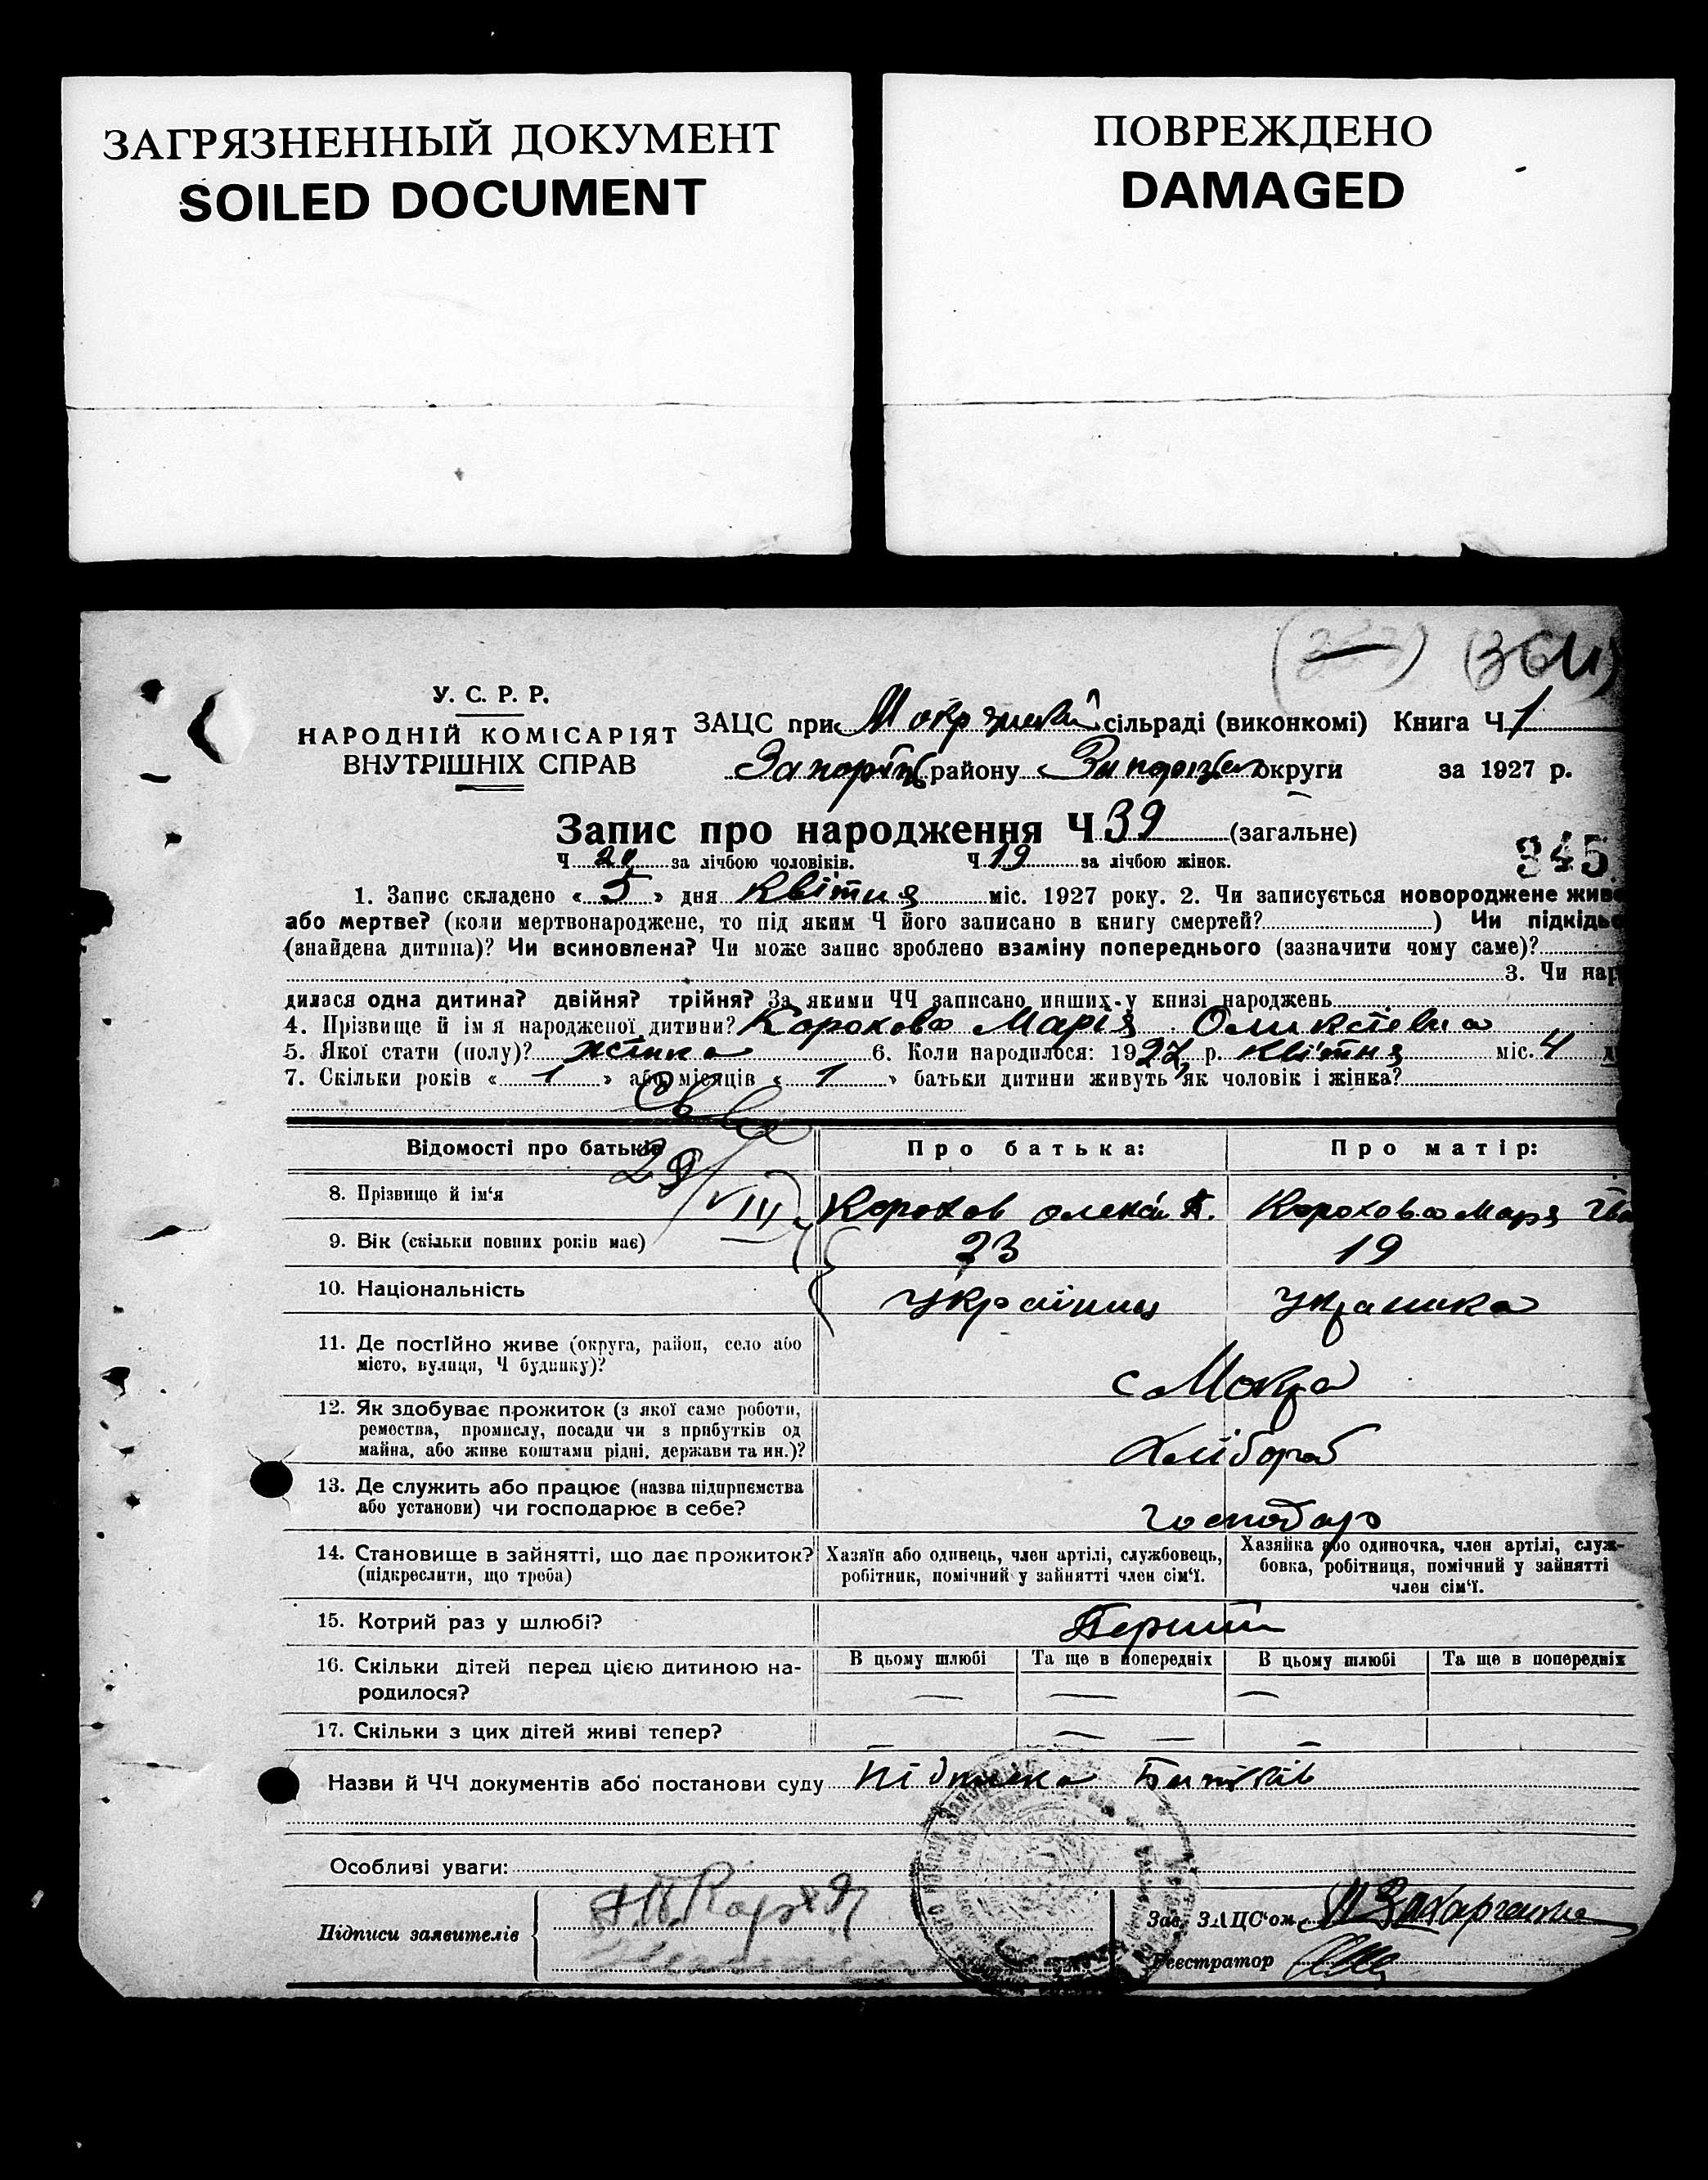 ЗАГРЯЗНЕННЫЙ ДОКУМЕНТ
SOILED DOCUMENT
ПОВРЕЖДЕНО
DAMAGED
(364)
У. С. Р. Р.
НАРОДНІЙ КОМІСАРІЯТ
ВНУТРІШНІХ СПРАВ
ЗАЦС при сільраді (виконкомі) Книга Ч. 1
району округи за 1927 р.
Запис про народження Ч 39 (загальне)
Ч. 20 за лічбою чоловіків. Ч. 19 за лічбою жінок.
345
1. Запис складено « 5 » дня Квітня міс. 1927 року. 2. Чи записується новороджене живе
або мертве? (коли мертвонароджене, то під яким Ч його записано в книгу смертей?) Чи підкідьо
(знайдена дитина)? Чи всиновлена? Чи може запис зроблено взаміну попереднього (зазначити чому саме)?
3. Чи нар
дилася одна дитина? двійня? трійня? За якими ЧЧ записано инших у книзі народжень
4. Прізвище й ім'я народженої дитини? Корохова Марія Оликсіевна
5. Якої стати (полу)? жінка 6. Коли народилося: 1927 р. Квітня міс. 4 д
7. Скільки років « 1 » або місяців « 1 » батьки дитини живуть як чоловік і жінка?
29/VIII
Відомості про батьків
Про батька:
Про матір:
8. Прізвище й ім'я
Корохов Олексій П.
Корохова Марія Іва
9. Вік (скільки повних років має)
23
19
10. Національність
Україниц
Украінка
11. Де постійно живе (округа, район, село або
місто, вулиця, Ч будинку)?
с Мокра
12. Як здобуває прожиток (з якої саме роботи,
ремества, промислу, посади чи з прибутків од
майна, або живе коштами рідні, держави та ин.)?
Хлібороб
13. Де служить або працює (назва підприємства
або установи) чи господарює в себе?
Господар
14. Становище в зайнятті, що дає прожиток?
(підкреслити, що треба)
Хазяїн або одинець, член артілі, службовець,
робітник, помічний у зайнятті член сім'ї.
Хазяйка або одиночка, член артілі, служ-
бовка, робітниця, помічний у зайнятті
член сім'ї.
15. Котрий раз у шлюбі?
Перший
16. Скільки дітей перед цією дитиною на-
родилося?
В цьому шлюбі
Та ще в попередніх
В цьому шлюбі
Та ще в попередніх
— — —
17. Скільки з цих дітей живі тепер?
— — — — —
Назви й ЧЧ документів або постанови суду Підписка Батьків
Особливі уваги:
Підписи заявителів
Зав. ЗАЦС'ом
Реєстратор